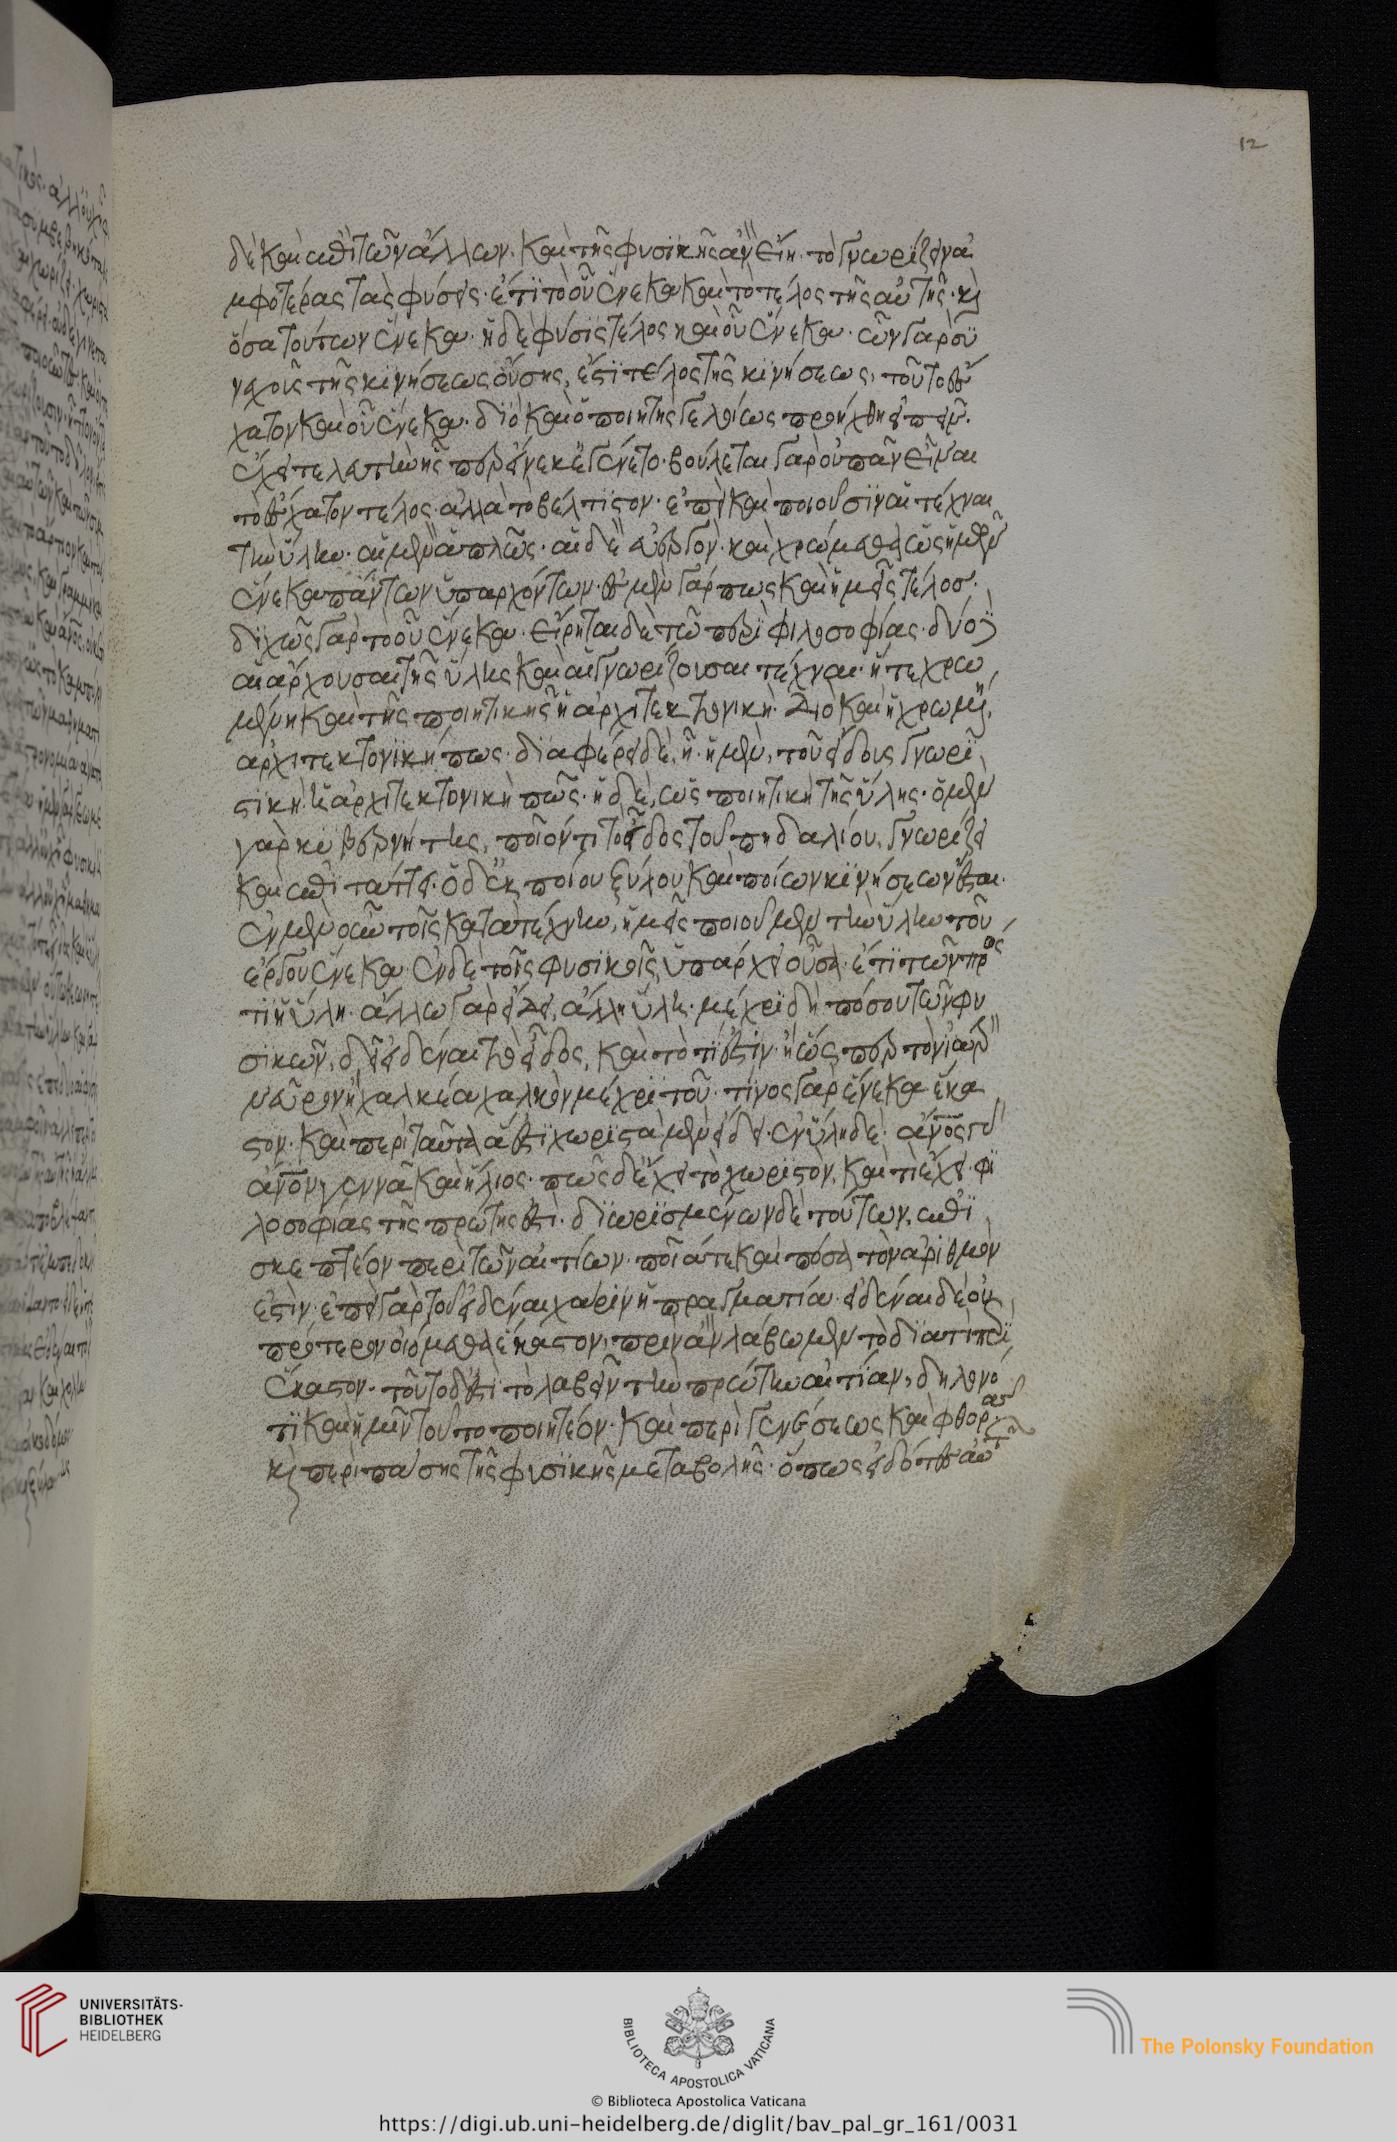 12
δὲ καὶ ἐπὶ τῶν ἄλλων. καὶ τῆς φυσικῆς ἂν εἴη τὸ γνωρίζειν ἀ
μφοτέρας τὰς φύσεις. ἔτι τὸ οὗ ἕνεκα καὶ τὸ τέλος τῆς αὐτῆς. κ
ὅσα τούτων ἕνεκα. ἡ δὲ φύσις τέλος καὶ οὗ ἕνεκα. ὧν γὰρ συ
νεχοῦς τῆς κινήσεως οὔσης, ἐστὶ τέλος τῆς κινήσεως, τοῦτο ἔσ
χατον καὶ οὗ ἕνεκα. διὸ καὶ ὁ ποιητὴς γελοίως προήχθη εἰπεῖν.
ἔχει τελευτὴν ἧς περ οὕνεκ' ἐγένετο. βούλεται γὰρ οὐ πᾶν εἶναι
τὸ ἔσχατον τέλος. ἀλλὰ τὸ βέλτιστον. ἐπεὶ καὶ ποιοῦσιν αἱ τέχναι
τὴν ὕλην. αἱ μὲν ἁπλῶς. αἱ δὲ εὐεργόν. καὶ χρώμεθα ὡς ἡμῶν
ἕνεκα πάντων ὑπαρχόντων. ἐσμὲν γάρ πως καὶ ἡμεῖς τέλος.
διχῶς γὰρ τὸ οὗ ἕνεκα. εἴρηται δὲ ἐν τῷ περὶ φιλοσοφίας. δύο
αἱ ἄρχουσαι τῆς ὕλης καὶ αἱ γνωρίζουσαι τέχναι. ἥ τε χρω
μένη καὶ τῆς ποιητικῆς ἡ ἀρχιτεκτονική. διὸ καὶ ἡ χρωμένη,
ἀρχιτεκτονική πως. διαφέρει δὲ, ᾗ. ἡ μὲν, τοῦ εἴδους γνωρι
στικὴ ἡ ἀρχιτεκτονικὴ πῶς. ἡ δὲ, ὡς ποιητικὴ τῆς ὕλης. ὁ μὲν
γὰρ κυβερνήτης, ποῖόν τι τὸ εἶδος τοῦ πηδαλίου, γνωρίζει
καὶ ἐπιτάττει. ὁ δ' ἐκ ποίου ξύλου καὶ ποίων κινήσεων ἔσται.
ἐν μὲν οὖν τοῖς κατὰ τέχνην, ἡμεῖς ποιοῦμεν τὴν ὕλην τοῦ
ἔργου ἕνεκα ἐν δὲ τοῖς φυσικοῖς ὑπάρχει οὖσα. ἔτι τῶν πρός
τι ἡ ὕλη. ἄλλω γὰρ εἴδει, ἄλλη ὕλη. μέχρι δὴ πόσου τὸν φυ
σικὸν, δεῖ εἰδέναι τὸ εἶδος, καὶ τὸ τί ἐστιν. ἢ ὥσπερ τὸν ἰατρὸν
νεῦρον ἢ χαλκέα χαλκὸν μέχρι τοῦ. τίνος γὰρ ἕνεκα ἕκα
στον. καὶ περὶ ταῦτα ἅ ἐστι χωριστὰ μὲν εἴδει. ἐν ὕλη δέ. ἄνος γὰρ
ἄνον γεννᾶ καὶ ἥλιος. πῶς δ' ἔχει τὸ χωριστὸν, καὶ τί ἔχει φι
λοσοφίας τῆς πρώτης ἐστί. διωρισμένων δὲ τούτων, ἐπι
σκεπτέον περὶ τῶν αἰτίων. ποῖά τε καὶ πόσα τὸν ἀριθμὸν
ἐστίν. ἐπεὶ γὰρ τοῦ εἰδέναι χάριν ἡ πραγματεία. εἰδέναι δὲ οὐ
πρότερον οἰόμεθα ἕκαστον, πρὶν ἂν λάβωμεν τὸ διὰ τί περὶ
ἕκαστον. τοῦτο δ' ἐστὶ τὸ λαβεῖν τὴν πρώτην αἰτίαν, δῆλον ὅ
τι καὶ ἡμῖν τοῦτο ποιητέον. καὶ περὶ γενέσεως καὶ φθορᾶς
κ περὶ πάσης τῆς φυσικῆς μεταβολῆς. ὅπως εἰδότες αὐτῶν
UNIVERSITÄTS-
BIBLIOTHEK
HEIDELBERG
BIBLIOTECA APOSTOLICA VATICANA
The Polonsky Foundation
© Biblioteca Apostolica Vaticana
https://digi.ub.uni-heidelberg.de/diglit/bav_pal_gr_161/0031